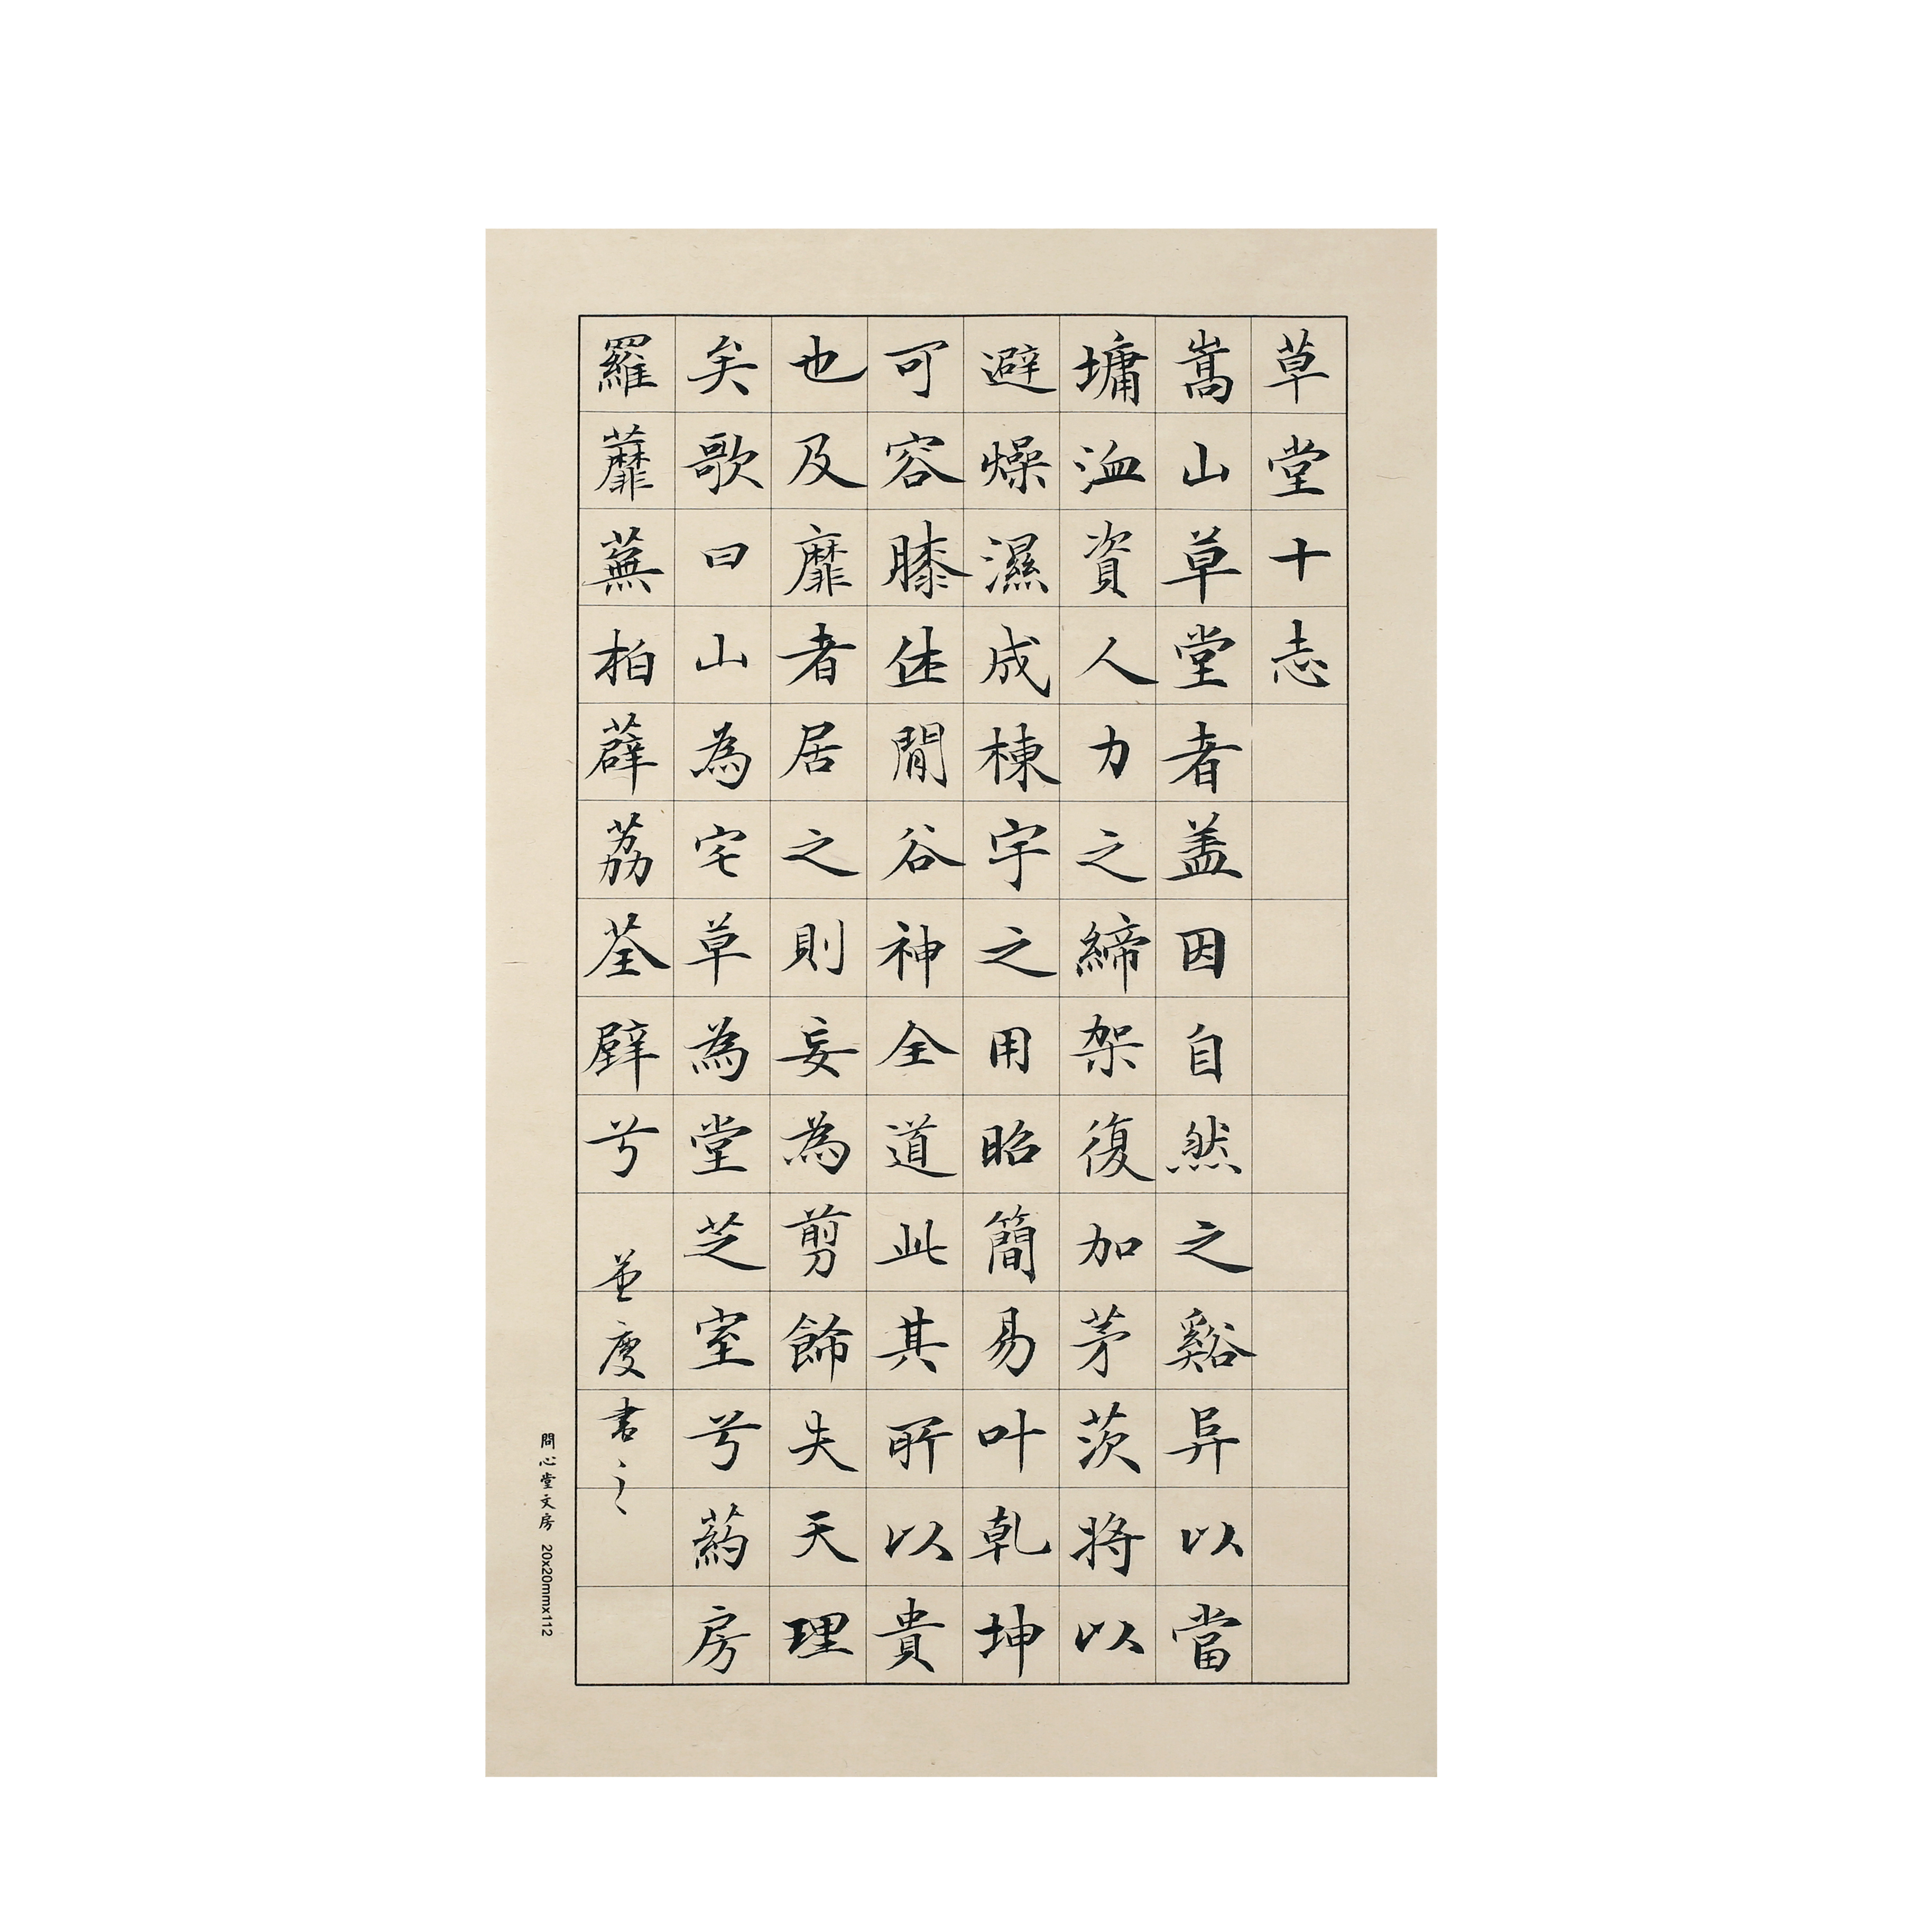 草堂十志
嵩山草堂者盖因自然之谿阜以當
墉洫資人力之締架復加茅茨將以
避燥濕成棟宇之用昭簡易叶乾坤
可容膝休閒谷神全道此其所以貴
也及靡者居之則妄為剪飾失天理
矣歌曰山為宅草為堂芝室兮葯房
羅蘼蕪柏薜荔荃壁兮 度書之
問心堂文房 20x20mmx112